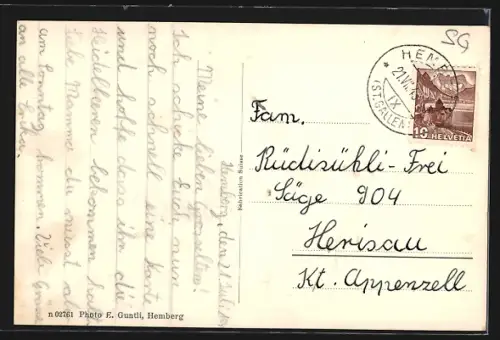 Hemberg, den 21. Juli
Meine lieben Grosselten!
Ich schicke Euch nun
noch schnell eine Karte
und hoffe dass ihr die
Heidelbeeren bekommen habt
Liebe Mamma du musst
am Sonntag kommen. Viele Grüsse
an alle
n 02761 Photo E. Guntli, Hemberg
Fabrication Suisse
SG
HEMBERG
21.VII
IX
(ST.GALLEN)
10 HELVETIA
Fam.
Rüdisühli-Frei
Säge 904
Herisau
Kt. Appenzell